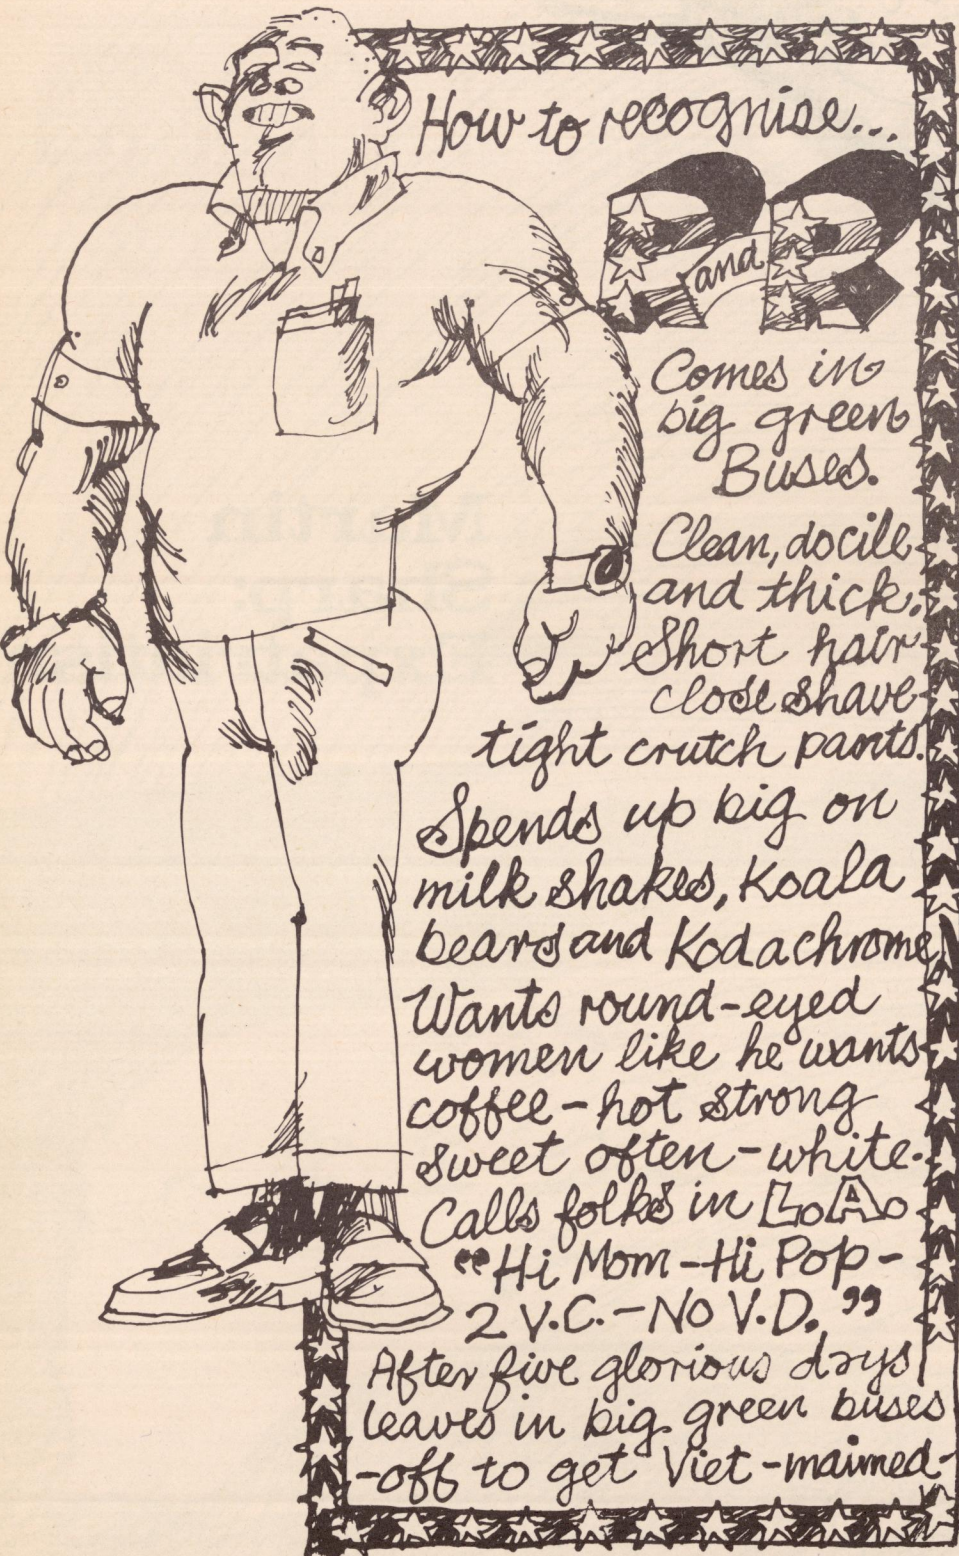 How to recognise...
R and R
Comes in
big green
Buses.
Clean, docile
and thick.
Short hair
close shave
tight crutch pants.
Spends up big on
milk shakes, Koala
bears and Kodachrome
Wants round-eyed
women like he wants
coffee - hot strong
sweet often - white.
Calls folks in L.A.
"Hi Mom - Hi Pop -
2 V.C. - No V.D."
After five glorious days
leaves in big green buses
- off to get Viet-maimed -